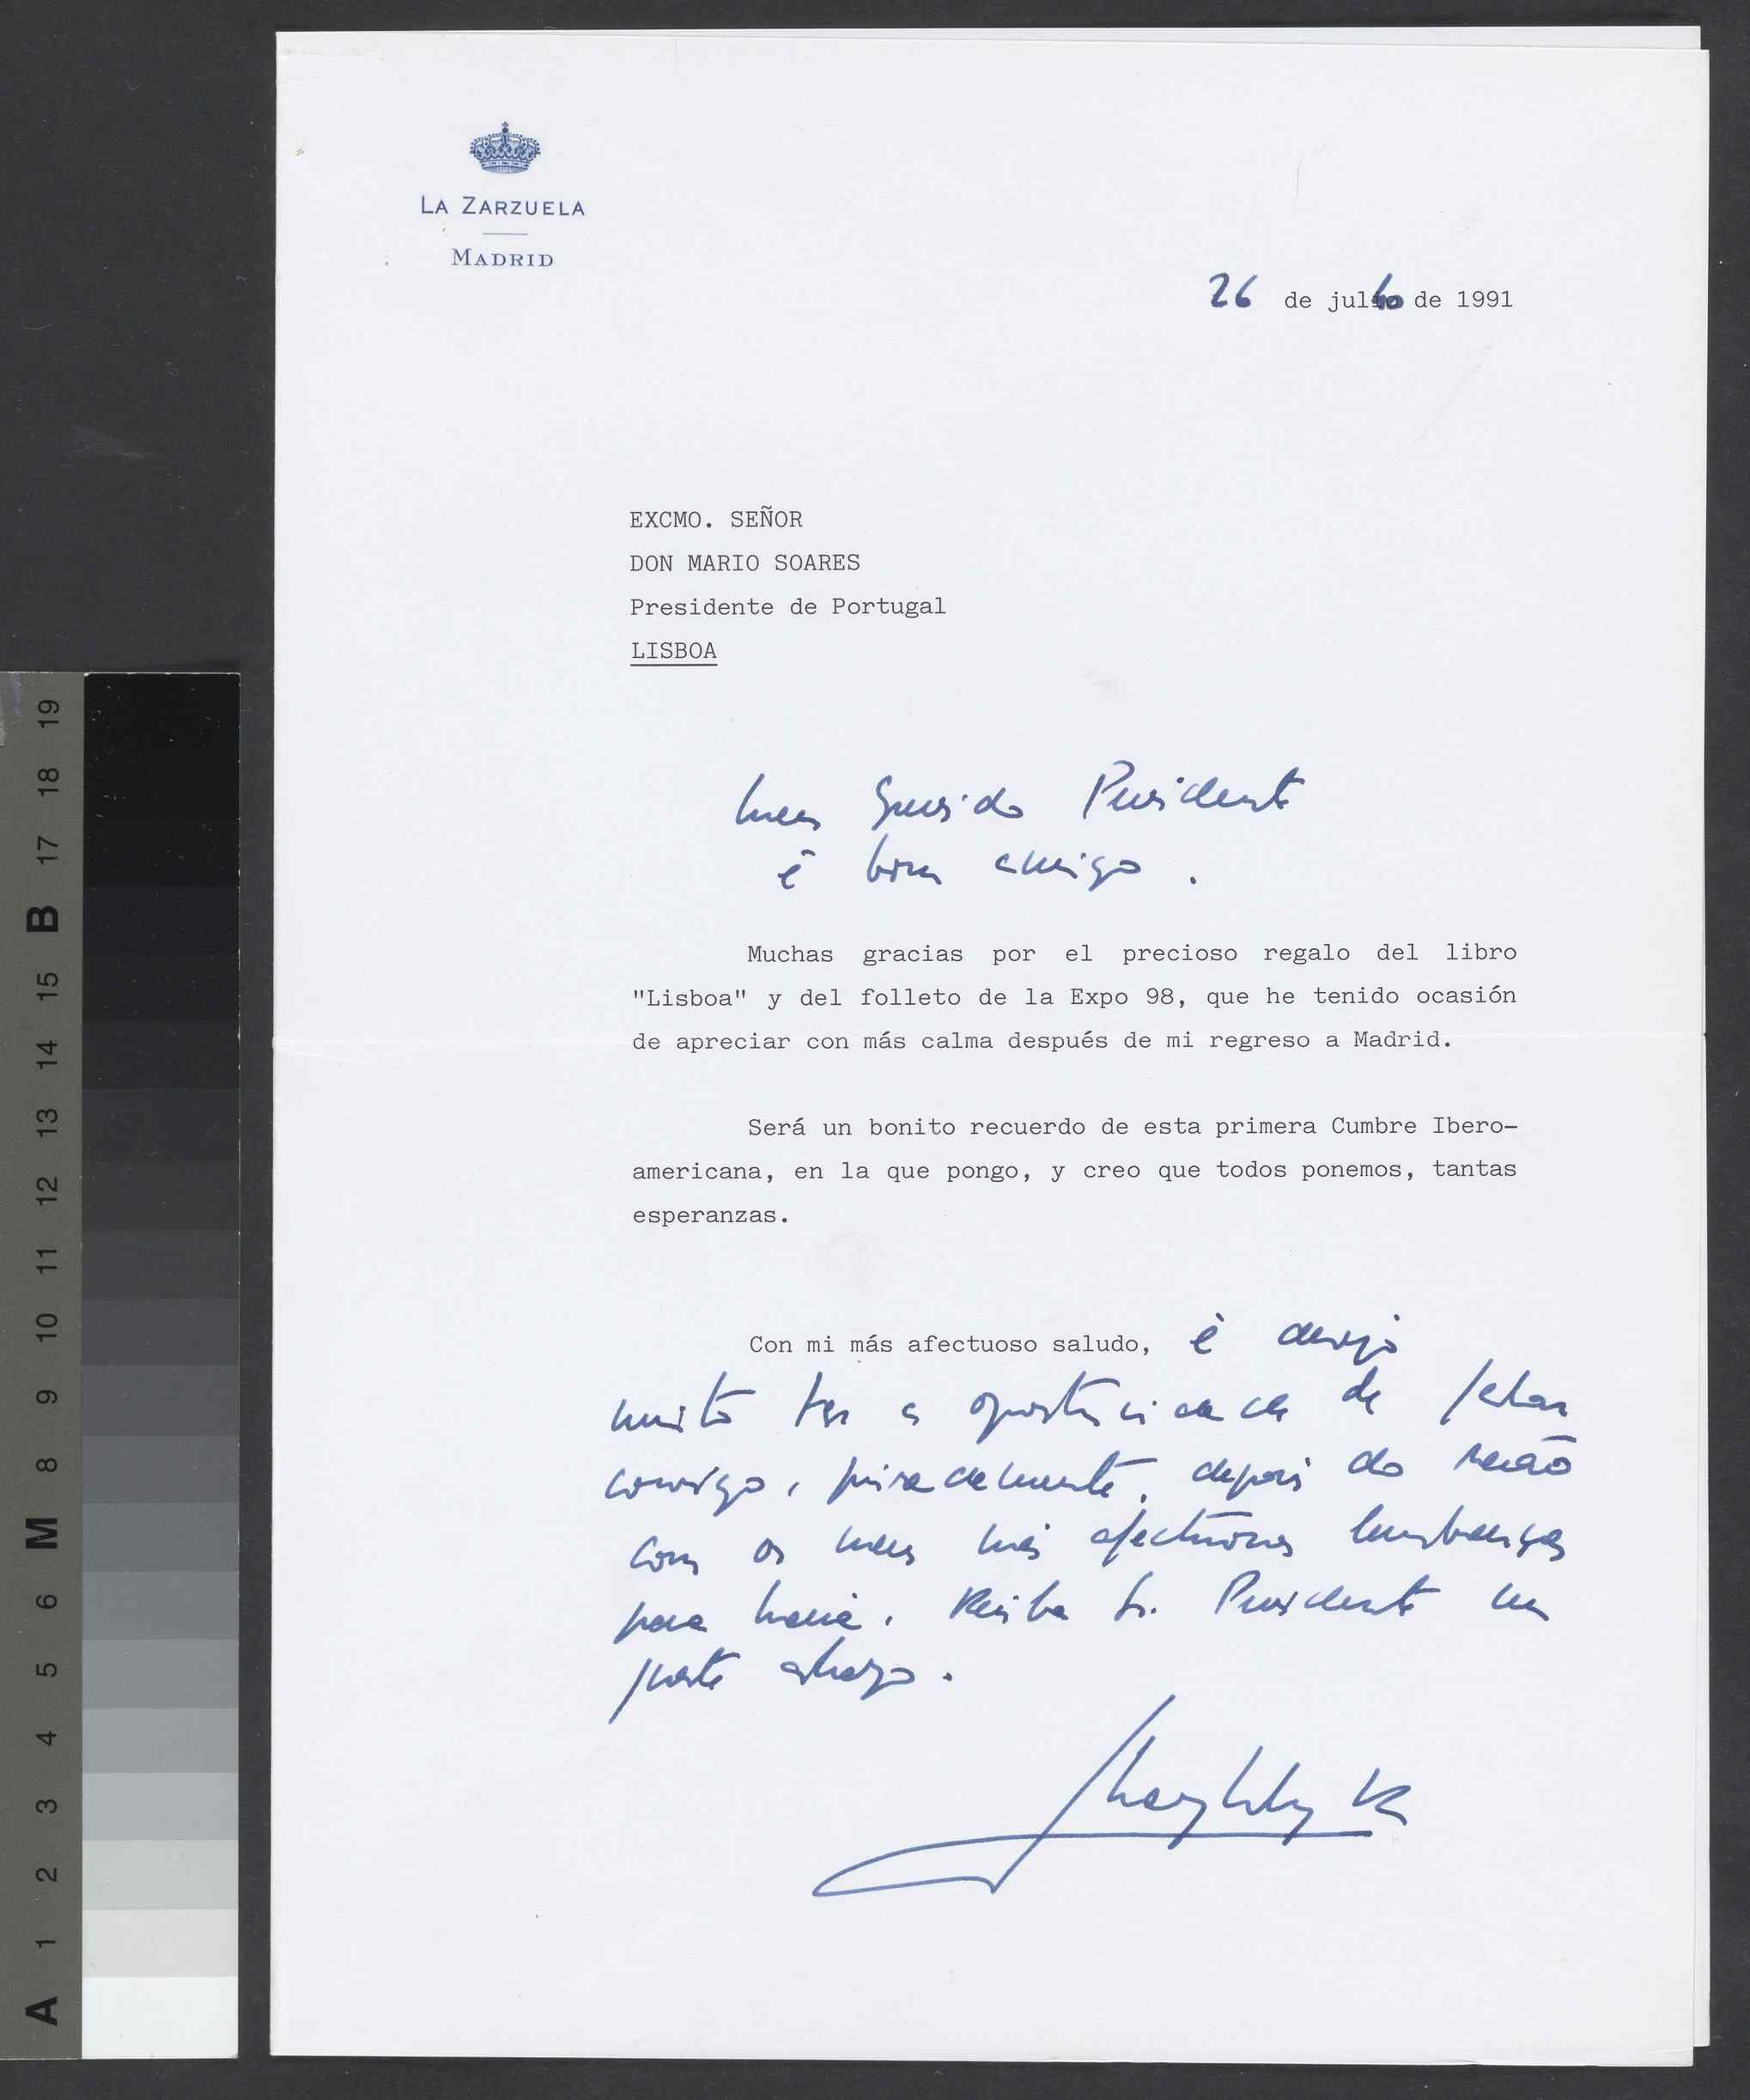 LA ZARZUELA
MADRID
26 de julio de 1991
EXCMO. SEÑOR
DON MARIO SOARES
Presidente de Portugal
LISBOA
Meu Querido Presidente
é bom amigo.
Muchas gracias por el precioso regalo del libro
"Lisboa" y del folleto de la Expo 98, que he tenido ocasión
de apreciar con más calma después de mi regreso a Madrid.
Será un bonito recuerdo de esta primera Cumbre Ibero-
americana, en la que pongo, y creo que todos ponemos, tantas
esperanzas.
Con mi más afectuoso saludo, é
muito ter a de falar
consigo, depois do
com os meus
para Maria. Reciba Sr. Presidente un
fuerte abrazo.
R
19
18
17
B
15
14
13
12
11
10
9
8
M
6
5
4
3
2
1
A